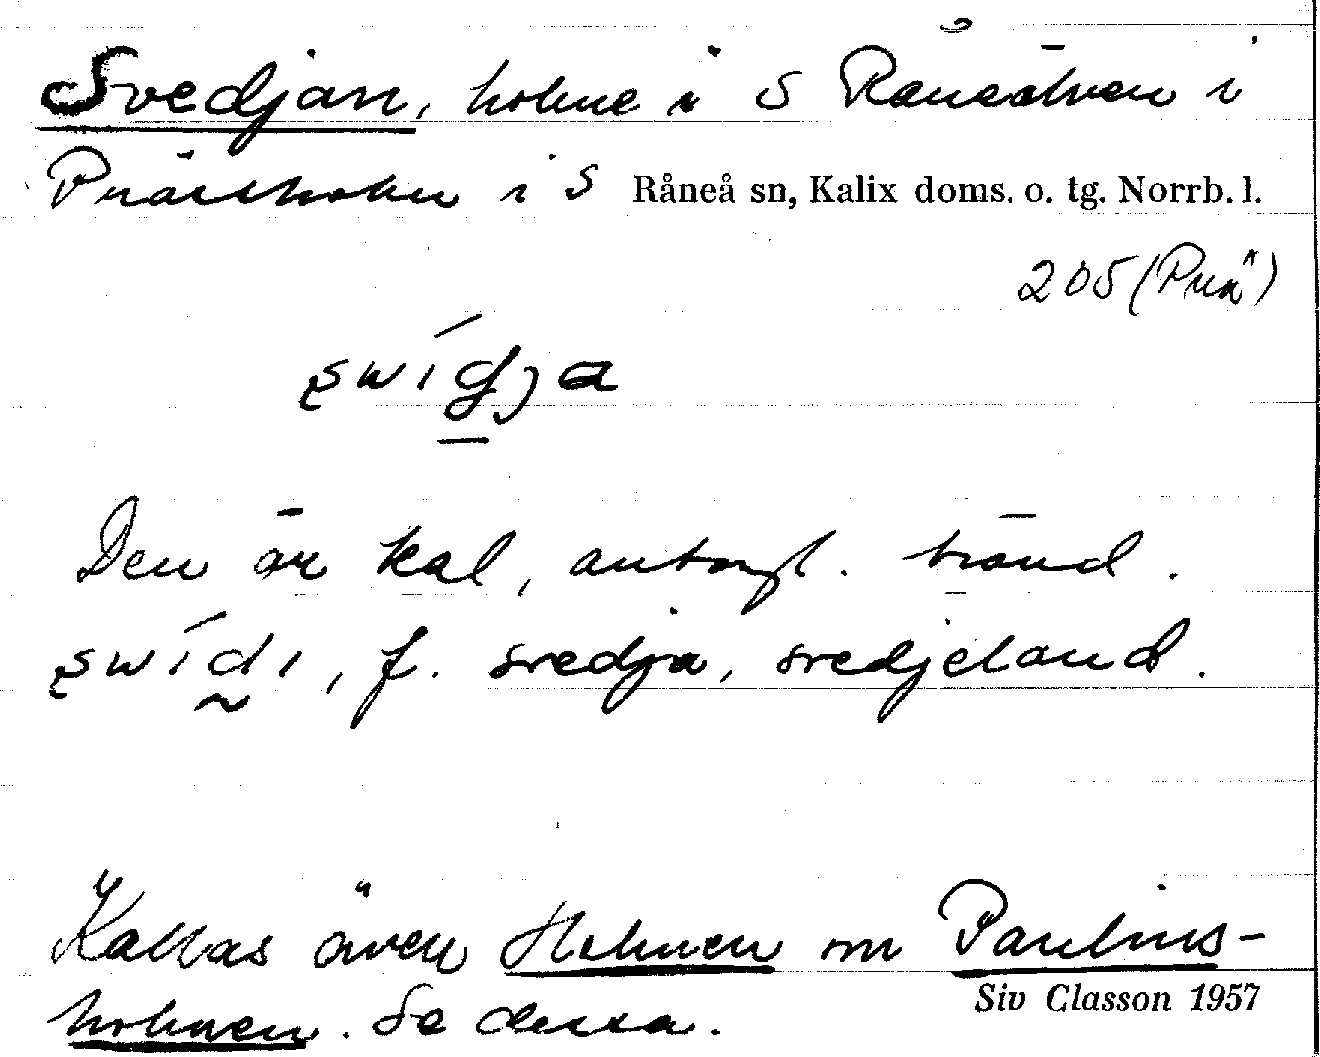 Svedjan, holme i S Råneälven i
Prästholm i S Råneå sn, Kalix doms. o. tg. Norrb. l.
205 (Prä)
swidja
Den är kal, antagl. bränd.
swidı, f. svedja, svedjeland.
Kallas även Holmen om Paulins-
holmen. Se dessa.
Siv Classon 1957